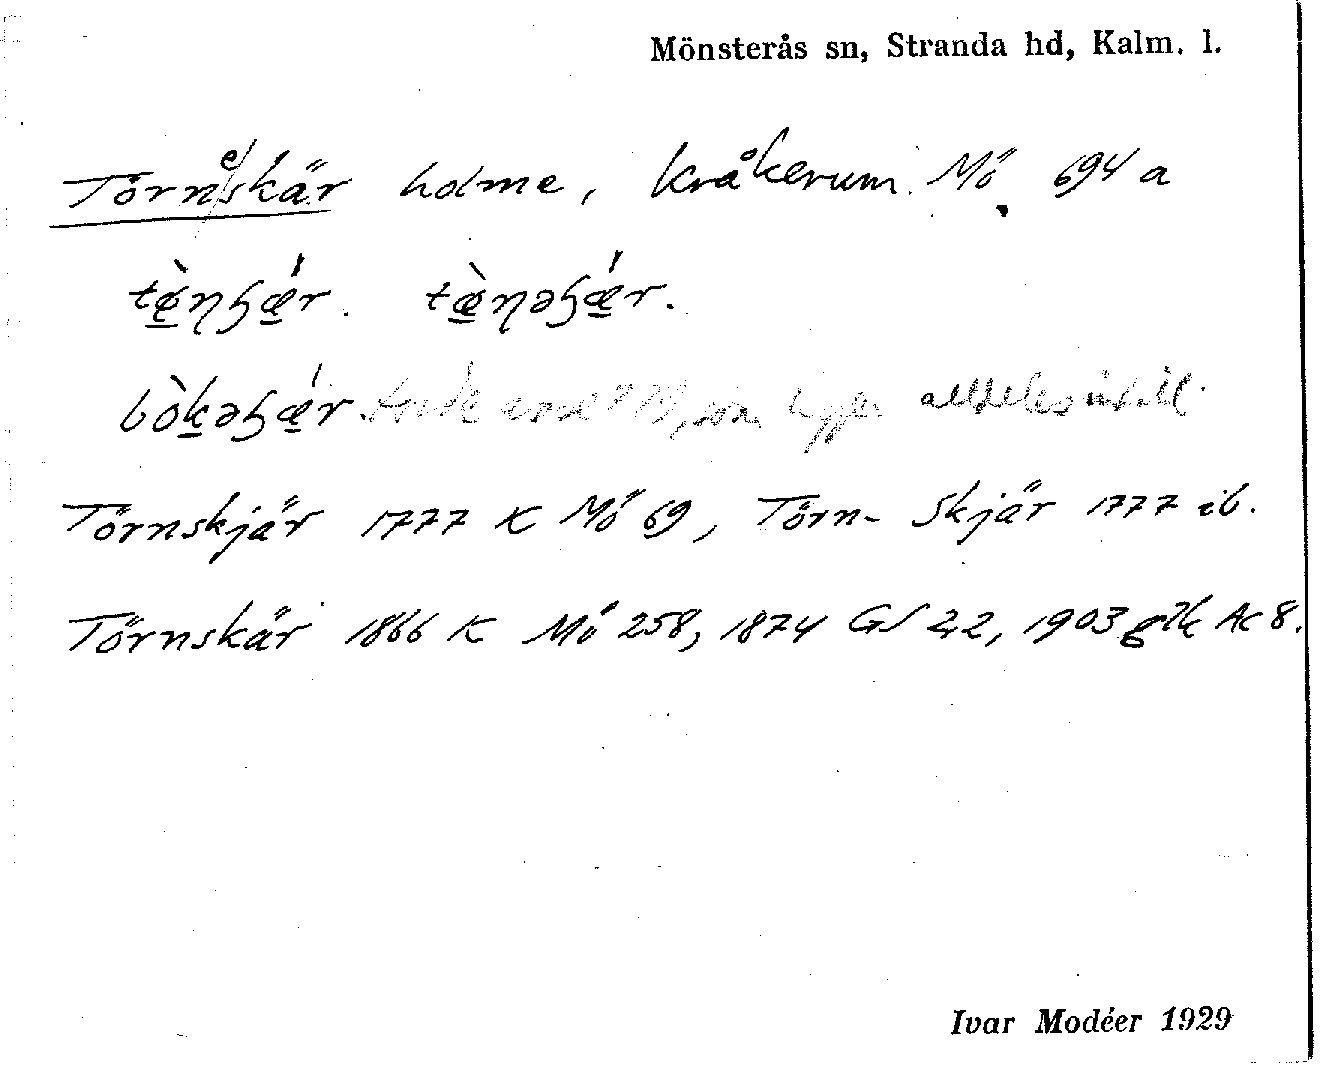 Mönsterås sn, Stranda hd, Kalm. l.
Törneskär holme, Kråkerum Mö 694 a
tæ̀ŋɧǽr. tæ̀ŋəɧǽr.
bòkəɧǽr. som ligger alldeles intill.
Törnskjär 1777 K Mö 69, Törn- Skjär 1777 ib.
Törnskär 1866 K Mö 258, 1874 GS 22, 1903 glk Ac 8.
Ivar Modéer 1929